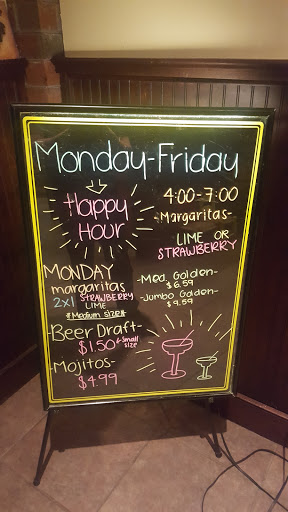 Monday-Friday
Happy
Hour
4:00-7:00
-Margaritas-
LIME OR
STRAWBERRY
MONDAY
margaritas
2x1 STRAWBERRY
LIME
*Medium size*
-Med. Golden-
$6.59
-Jumbo Golden-
$9.59
-Beer Draft-
$1.50 Small
size
-Mojitos-
$4.99